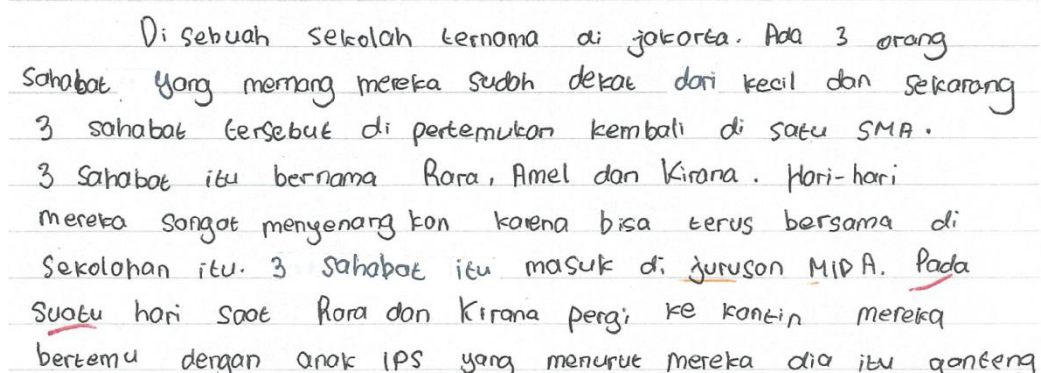 Di sebuah sekolah ternama di jakarta. Ada 3 orang
sahabat yang memang mereka sudah dekat dari kecil dan sekarang
3 sahabat tersebut di pertemukan kembali di satu SMA.
3 sahabat itu bernama Rara, Amel dan Kirana. Hari-hari
mereka sangat menyenang kan karena bisa terus bersama di
sekolahan itu. 3 sahabat itu masuk di jurusan MIPA. Pada
suatu hari saat Rara dan Kirana pergi ke kantin mereka
bertemu dengan anak IPS yang menurut mereka dia itu ganteng